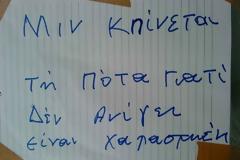 Μιν κπίνεται
Τη Πότα Γιατί
Δέν Ανίγει
είναι χαπασμεη